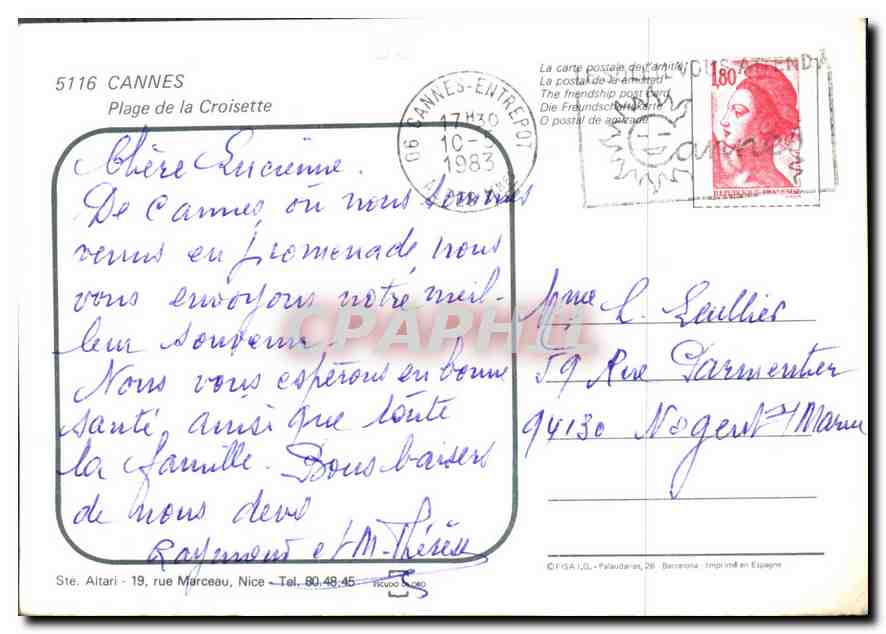 5116 CANNES
Plage de la Croisette
La carte postale de l'amitié
La postal de la amistad
The friendship post card
Die Freundschaftskarte
O postal de amizade
06 CANNES-ENTREPOT
17H30
10-5
1983
VOUS ATTEND
Cannes
1,80
REPUBLIQUE FRANÇAISE
Chère Lucienne.
De Cannes où nous sommes
venus en promenade, nous
vous envoyons notre meil-
leur souvenir.
Nous vous espérons en bonne
santé, ainsi que toute
la famille. Bons baisers
de nous deux
Raymond et M-Thérèse
Mme L. Leullier
59 Rue Parmentier
94130 Nogent s/ Marne
CPAPHIL
Ste. Altari - 19, rue Marceau, Nice - Tel. 80.48.45
ESCUDO DE ORO
© FISA I.G. - Palaudarias, 26 - Barcelona - Imprimé en Espagne